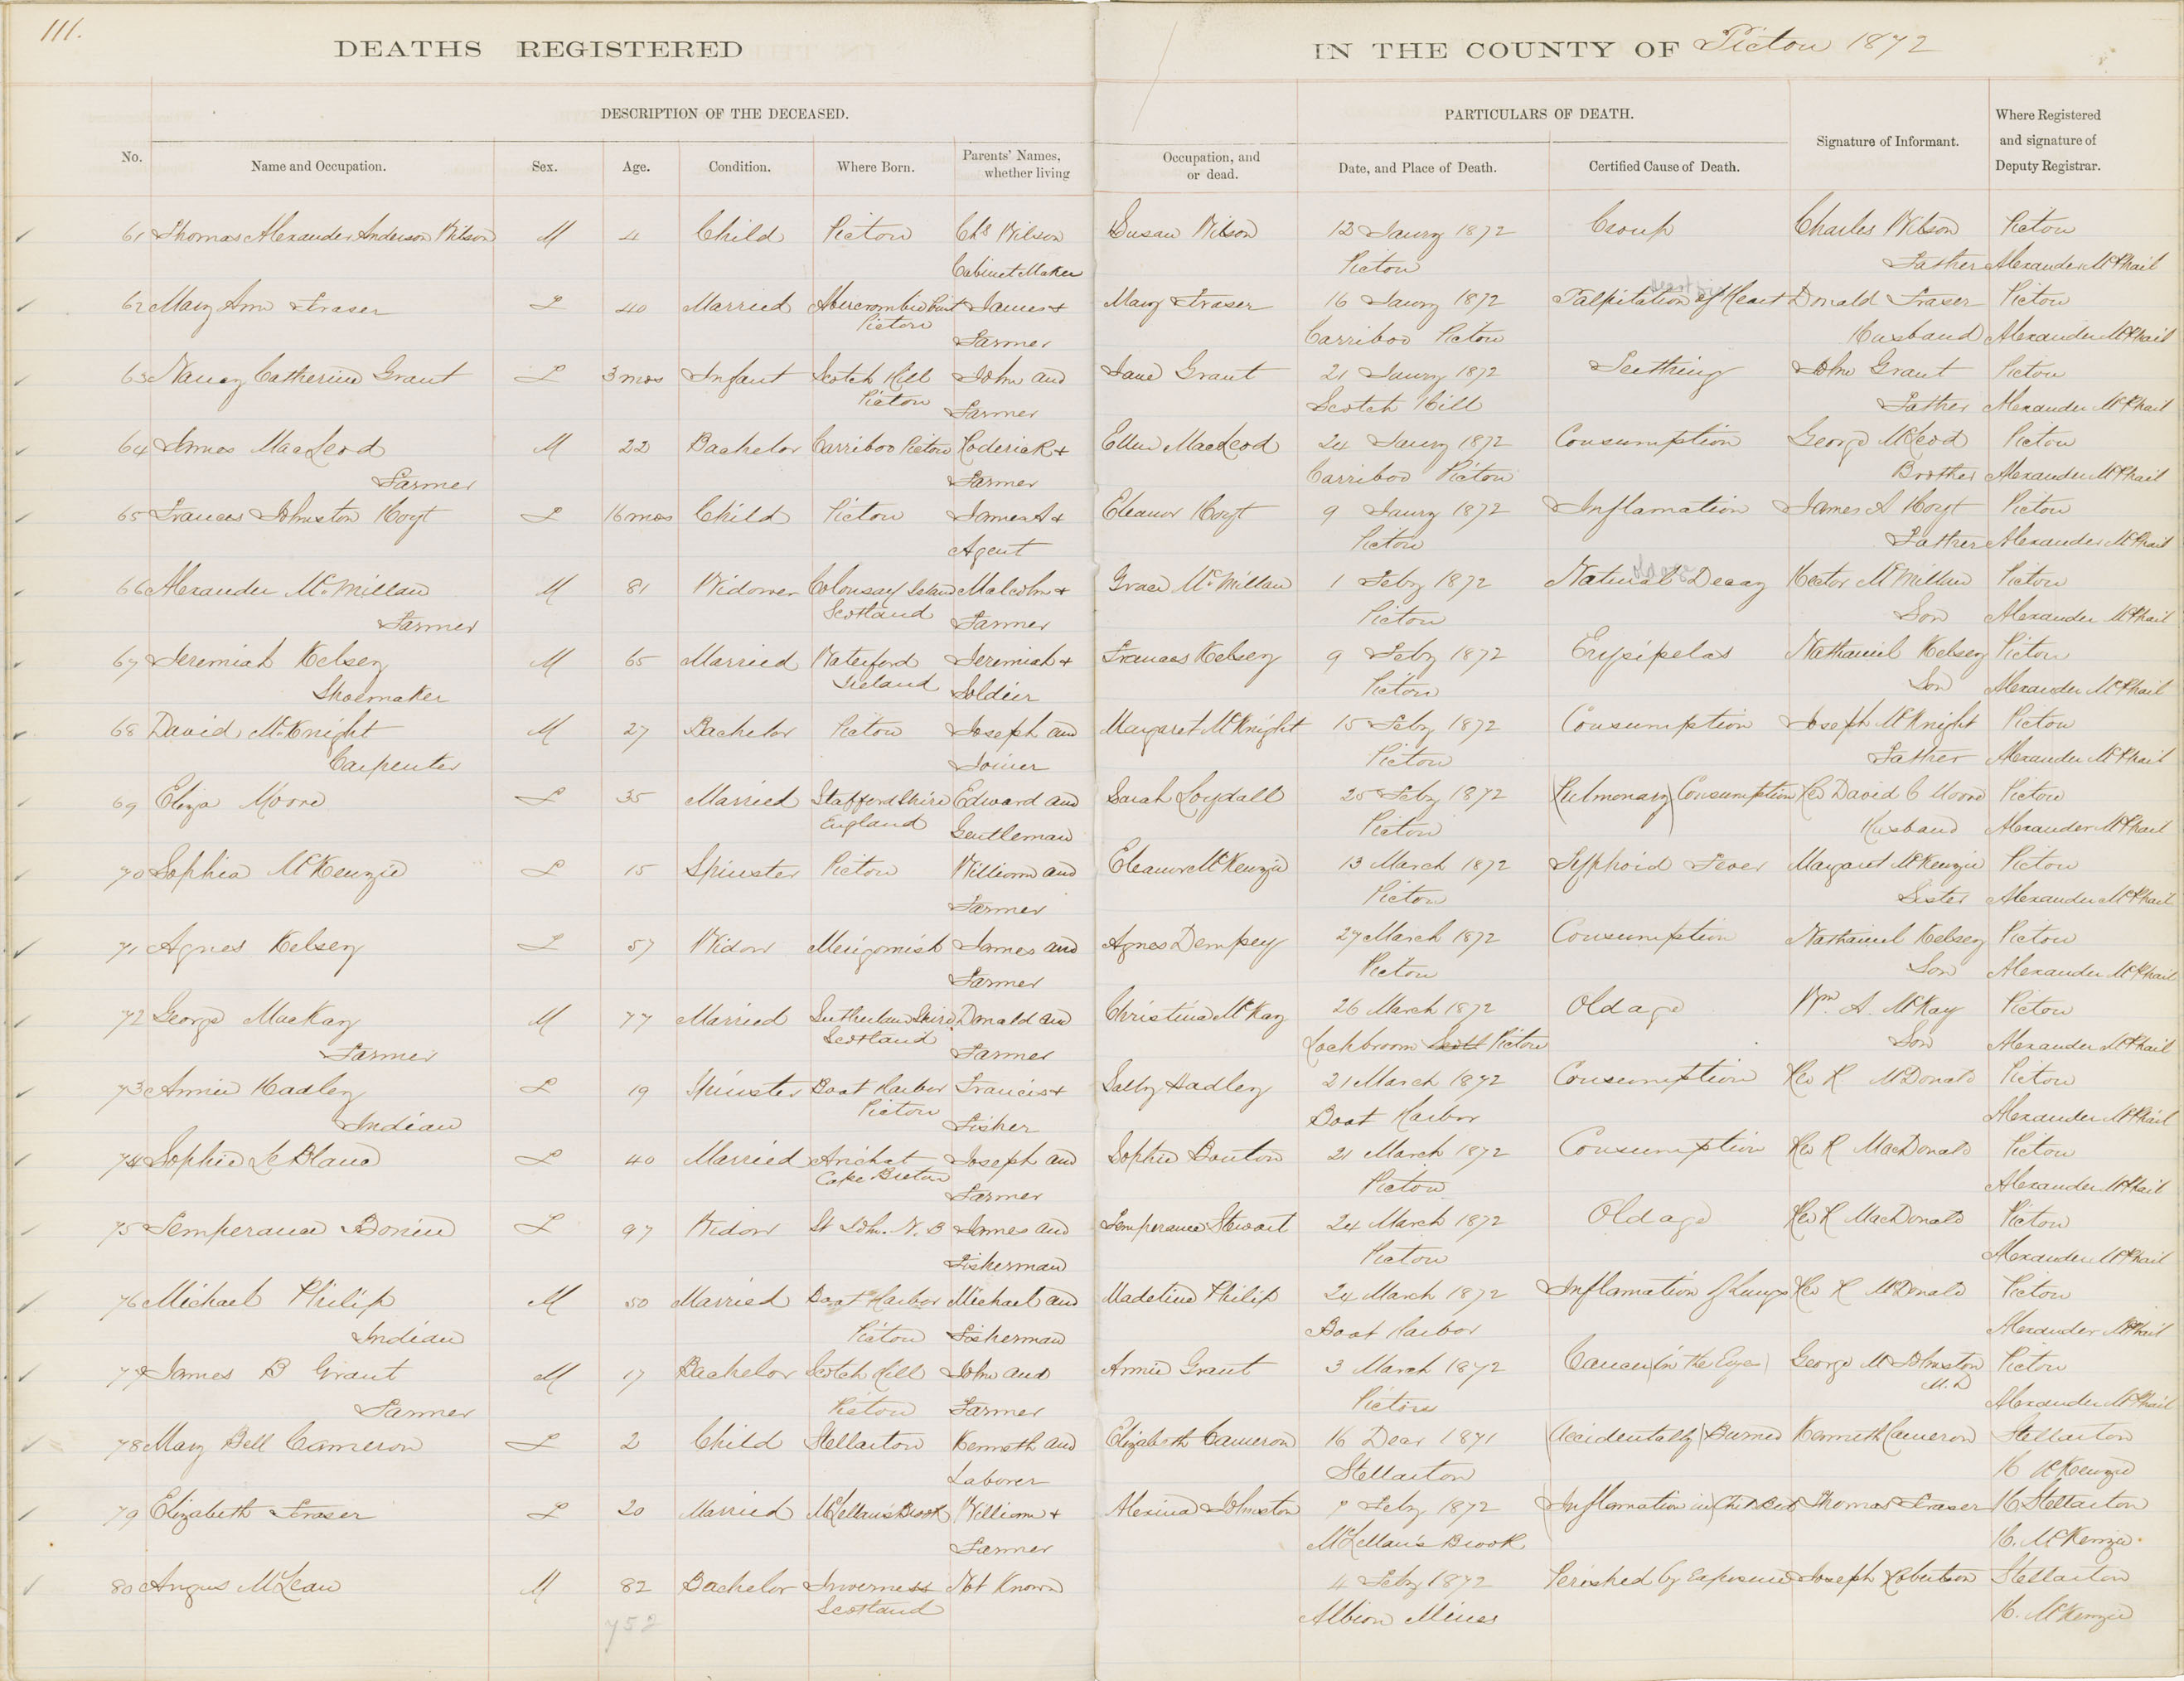 111.
DEATHS REGISTERED IN THE COUNTY OF Pictou 1872
DESCRIPTION OF THE DECEASED. PARTICULARS OF DEATH.
No. Name and Occupation. Sex. Age. Condition. Where Born. Parents' Names, whether living Occupation, and or dead. Date, and Place of Death. Certified Cause of Death. Signature of Informant. Where Registered and signature of Deputy Registrar.
61 Thomas Alexander Anderson Wilson M 4 Child Pictou Chs Wilson Susan Wilson 12 Jaury 1872 Croup Charles Wilson Pictou
Cabinet Maker Pictou Father Alexander McPhail
62 Mary Ann Fraser F 40 Married Abercrombie Point James + Mary Fraser 16 Jaury 1872 Palpitation of Heart Donald Fraser Pictou
Pictou Farmer Carriboo Pictou Husband Alexander McPhail
63 Nancy Catherine Grant F 3 mos Infant Scotch Hill John and Jane Grant 21 Jaury 1872 Teething John Grant Pictou
Pictou Farmer Scotch Hill Father Alexander McPhail
64 James MacLeod M 22 Bachelor Carriboo Pictou Roderick + Ellen MacLeod 24 Jaury 1872 Consumption George McLeod Pictou
Farmer Farmer Carriboo Pictou Brother Alexander McPhail
65 Frances Johnston Hoyt F 16 mos Child Pictou James A + Eleanor Hoyt 9 Jaury 1872 Inflamation James A Hoyt Pictou
Agent Pictou Father Alexander McPhail
66 Alexander McMillan M 81 Widower Colonsay Island Malcolm + Grace McMillan 1 Feby 1872 Natural Decay Hector McMillan Pictou
Farmer Scotland Farmer Pictou Son Alexander McPhail
67 Jeremiah Kelsey M 65 Married Waterford Jeremiah + Frances Kelsey 9 Feby 1872 Erysipelas Nathaniel Kelsey Pictou
Shoemaker Ireland Soldier Pictou Son Alexander McPhail
68 David McKnight M 27 Bachelor Pictou Joseph and Margaret McKnight 15 Feby 1872 Consumption Joseph McKnight Pictou
Carpenter Joiner Pictou Father Alexander McPhail
69 Eliza Moore F 35 Married Staffordshire Edward and Sarah Loydall 25 Feby 1872 (Pulmonary) Consumption Rev David C Moore Pictou
England Gentleman Pictou Husband Alexander McPhail
70 Sophia McKenzie F 15 Spinster Pictou William and Eleanor McKenzie 13 March 1872 Typhoid Fever Margaret McKenzie Pictou
Farmer Pictou Sister Alexander McPhail
71 Agnes Kelsey F 57 Widow Merigomish James and Agnes Dempsey 27 March 1872 Consumption Nathaniel Kelsey Pictou
Farmer Pictou Son Alexander McPhail
72 George MacKay M 77 Married Sutherland Shire Donald and Christina McKay 26 March 1872 Old age Wm. A. McKay Pictou
Farmer Scotland Farmer Lochbroom Pictou Son Alexander McPhail
73 Annie Hadley F 19 Spinster Boat Harbor Francis + Sally Hadley 21 March 1872 Consumption Rev R McDonald Pictou
Indian Pictou Fisher Boat Harbor Alexander McPhail
74 Sophie LeBlanc F 40 Married Arichat Joseph and Sophie 21 March 1872 Consumption Rev R MacDonald Pictou
Cape Breton Farmer Pictou Alexander McPhail
75 Temperance F 97 Widow St John. N.B James and Temperance Stewart 24 March 1872 Old age Rev R MacDonald Pictou
Fisherman Pictou Alexander McPhail
76 Michael Philip M 50 Married Boat Harbor Michael and Madeline Philip 24 March 1872 Inflamation of Lungs Rev R McDonald Pictou
Indian Pictou Fisherman Boat Harbor Alexander McPhail
77 James B Grant M 17 Bachelor Scotch Hill John and Annie Grant 3 March 1872 Cancer (in the Eyes) George M Johnston M.D Pictou
Farmer Pictou Farmer Pictou Alexander McPhail
78 Mary Bell Cameron F 2 Child Stellarton Kenneth and Elizabeth Cameron 16 Decr 1871 (Accidentally) Burned Kenneth Cameron Stellarton
Laborer Stellarton H McKenzie
79 Elizabeth Fraser F 20 Married McLellan's Brook William + Alexina Johnston 7 Feby 1872 Inflamation in (Child Bed) Thomas Fraser Stellarton
Farmer McLellan's Brook H. McKenzie
80 Angus McLean M 82 Bachelor Inverness Not Known 4 Feby 1872 Perished by Exposure Joseph Robertson Stellarton
Scotland Albion Mines H. McKenzie
752